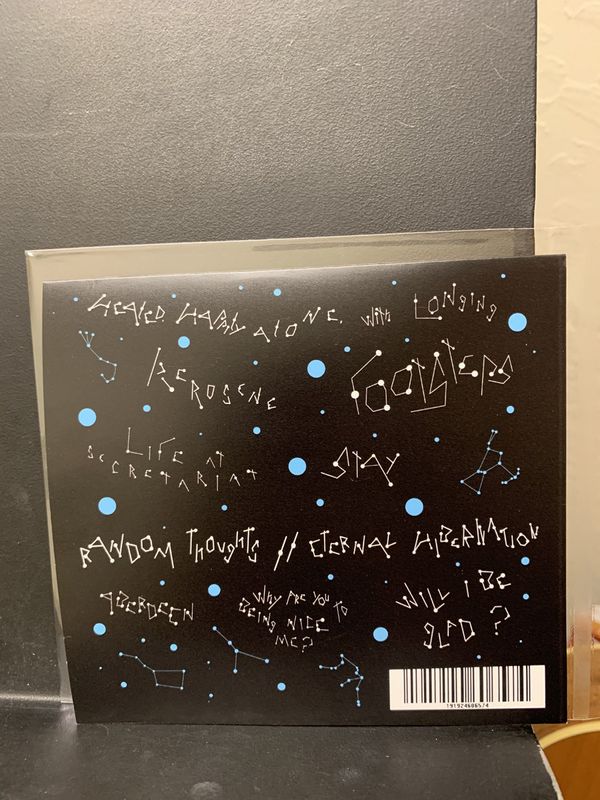 HEALED, HAPPY, ALONE, WITH LONGING
KEROSENE
FOOTSTEPS
LIFE AT
SECRETARIAT
STAY
RANDOM THOUGHTS // ETERNAL HIBERNATION
ABERDEEN
WHY ARE YOU
BEING NICE TO
ME?
WILL I BE
GLAD?
191924686574